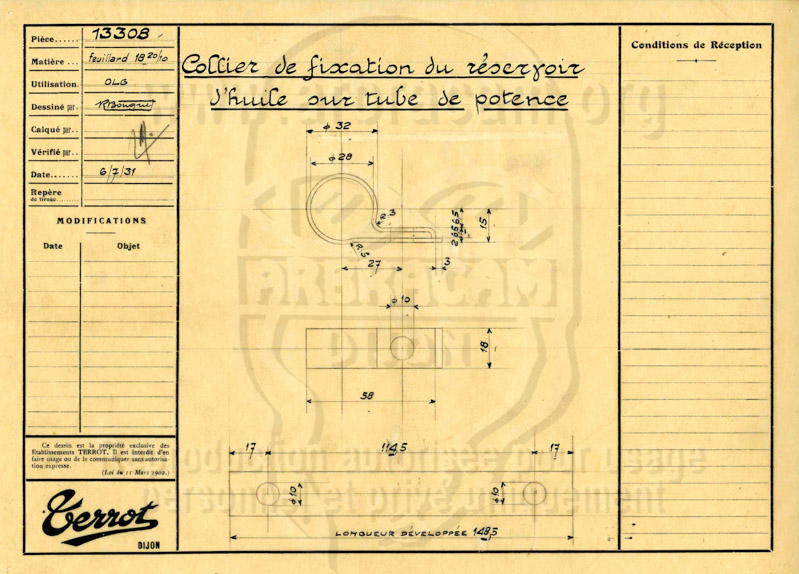 Pièce...... 13308
Matière... feuillard 18 20/10
Utilisation. OLG
Dessiné par.
Calqué par..
Vérifié par..
Date....... 6/7/31
Repère
de tirage........
MODIFICATIONS
Date Objet
Ce dessin est la propriété exclusive des
Etablissements TERROT. Il est interdit d'en
faire usage ou de le communiquer sans autorisa-
tion expresse.
(Loi du 11 Mars 1902.)
Terrot
DIJON
Collier de fixation du réservoir
d'huile sur tube de potence
ϕ 32
ϕ 28
R.3
R.5
15
27
3
ϕ10
18
58
17
114,5
17
ϕ10
ϕ10
LONGUEUR DÉVELOPPÉE 148,5
Conditions de Réception
ARBRACAM
DIJON
Reproduction autorisée pour usage
personnel et privé uniquement